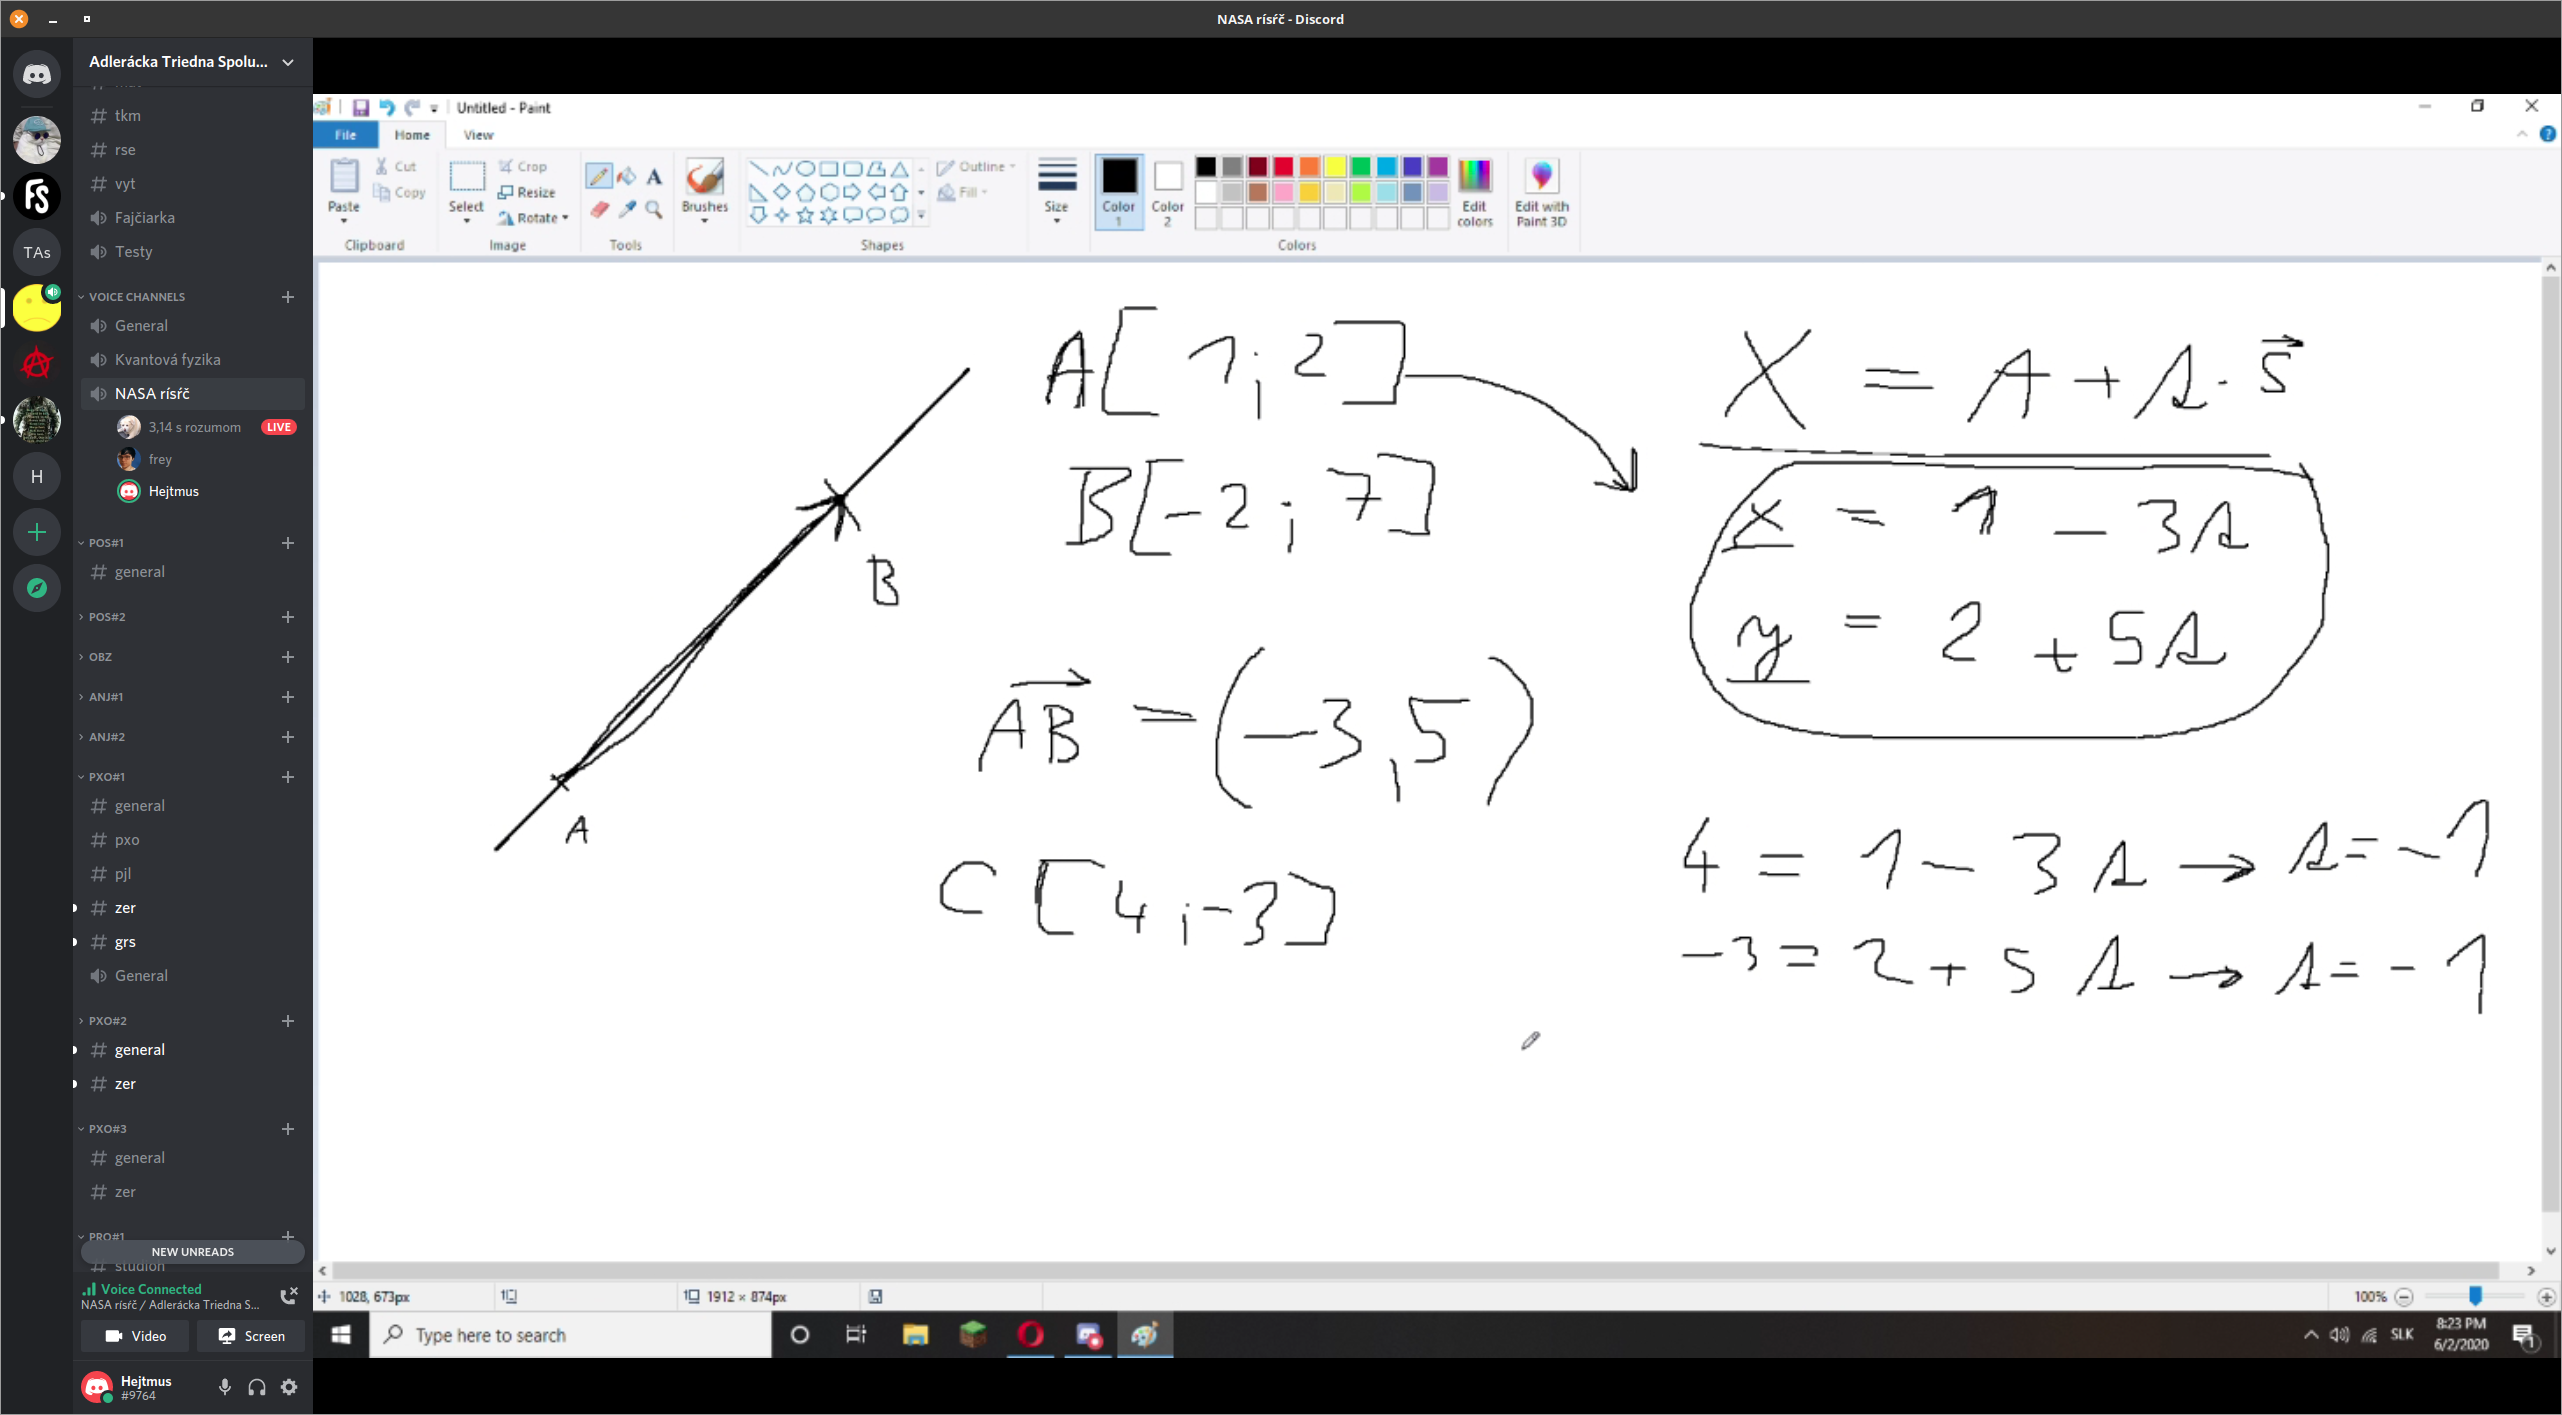 NASA rísŕč - Discord
Adlerácka Triedna Spolu...
tkm
rse
vyt
Fajčiarka
Testy
VOICE CHANNELS
General
Kvantová fyzika
NASA rísŕč
3,14 s rozumom LIVE
frey
Hejtmus
POS#1
general
POS#2
OBZ
ANJ#1
ANJ#2
PXO#1
general
pxo
pjl
zer
grs
General
PXO#2
general
zer
PXO#3
general
zer
PRO#1
NEW UNREADS
studion
Voice Connected
NASA rísŕč / Adlerácka Triedna S...
Video Screen
Hejtmus
#9764
TAs
FS
H
Untitled - Paint
File Home View
Paste Cut Copy
Clipboard
Select Crop Resize Rotate
Image
A
Tools
Brushes
Outline Fill
Shapes
Size
Color 1 Color 2
Edit colors
Colors
Edit with Paint 3D
A[1;2]
B[-2;7]
B
A
AB = (-3,5)
C[4;-3]
X = A + s·s
x = 1 - 3s
y = 2 + 5s
4 = 1 - 3s → s = -1
-3 = 2 + 5s → s = -1
1028, 673px
1912 × 874px
100%
Type here to search
SLK
8:23 PM
6/2/2020
1